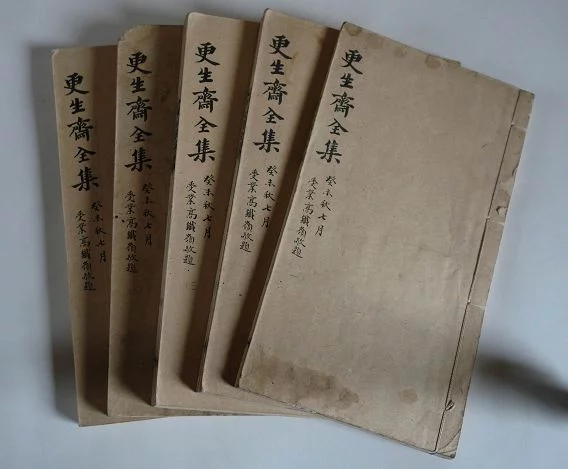 更生齋全集
癸未秋七月
受業高鐵嶺敬題
更生齋全集
癸未秋七月
受業高鐵嶺敬題
更生齋全集
癸未秋七月
受業高鐵嶺敬題
更生齋全集
癸未秋七月
受業高鐵嶺敬題
更生齋全集
癸未秋七月
受業高鐵嶺敬題